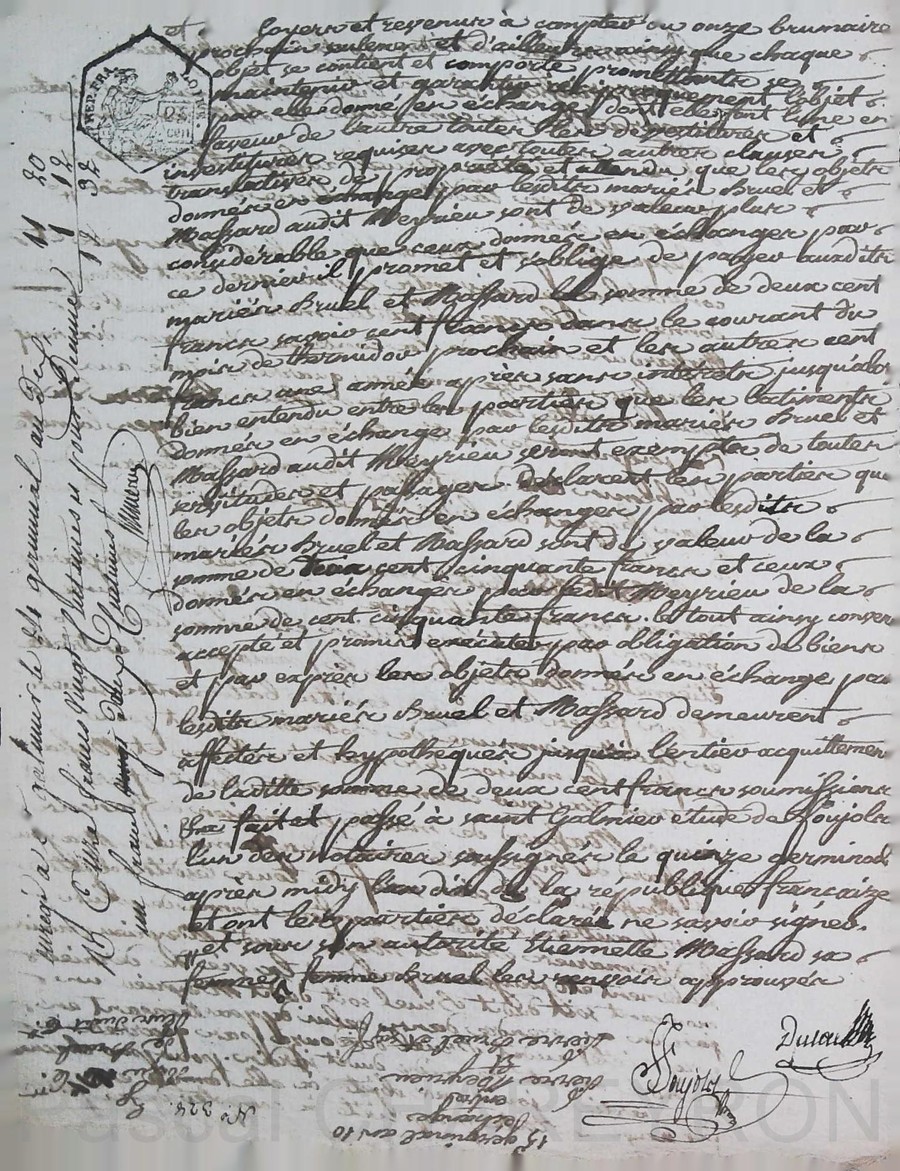 et loyers et revenus à compter du onze brumaire
prochain seulement et d'ailleurs ainsy que chaque
objet se contient et comporte promettants se
maintenir et garantir réciproquement l'objet
par elle donné en échange dont elles font l'une en
faveur de l'autre toutes les dévestitures et
investitures requises avec toutes autres clauses
translatives de propriété et attendu que les objets
donnés en échange par lesdits mariés Bruel et
Massard audit Meyrieu sont de valeur plus
considérable que ceux donnés en échanges par
ce dernier il promet et s'oblige de payer auxdits
mariés Bruel et Massard la somme de deux cent
francs savoir cent francs dans le courant du
mois de thermidor prochain et les autres cent
francs une année après sans intérêts jusqu'alors
bien entendu entre les parties que les batiments
donnés en échange par lesdits mariés Bruel et
Massard audit Meyrieu seront exempts de toutes
servitudes et passages déclarent les parties que
les objets donnés en échanges par lesdits
mariés Bruel et Massard sont de valeur de la
somme de cent cinquante francs et ceux
donnés en échanges par ledit Meyrieu de la
somme de cent cinquante francs. le tout ainsy conven
accepté et promis exécuter par obligation de biens
et par exprès les objets donnés en échange par
lesdits mariés Bruel et Massard demeurent
affectés et hypothéqués jusqu'à l'entier acquittement
de laditte somme de deux cent francs soumissions
fait et passé à saint Galmier etude de Poujols
l'un des notaires soussignés le quinze germinal
après midy l'an dix de la république française
et ont les parties déclaré ne savoir signer.
et sous son autorité Etiennette Massard sa
femme femme Bruel les renvois approuvés
Poujols
15 germinal an 10
échange
entre
Pierre Meyrieu
et
Pierre Bruel et sa
N.° 324
galmier le germinal an dix
francs vingt centimes
un franc